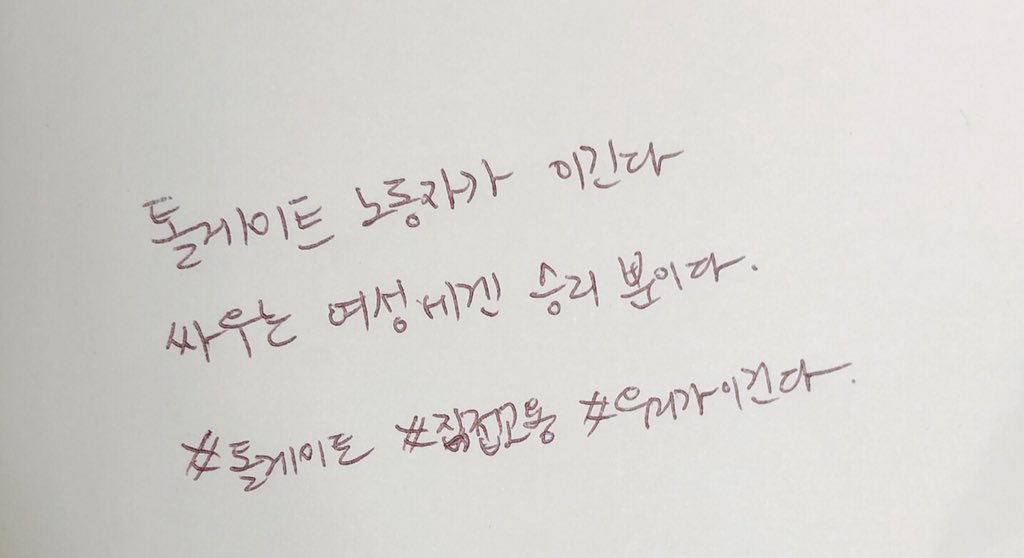 톨게이트 노동자가 이긴다
싸우는 여성에겐 승리 뿐이다.
#톨게이트 #직접고용 #우리가이긴다.